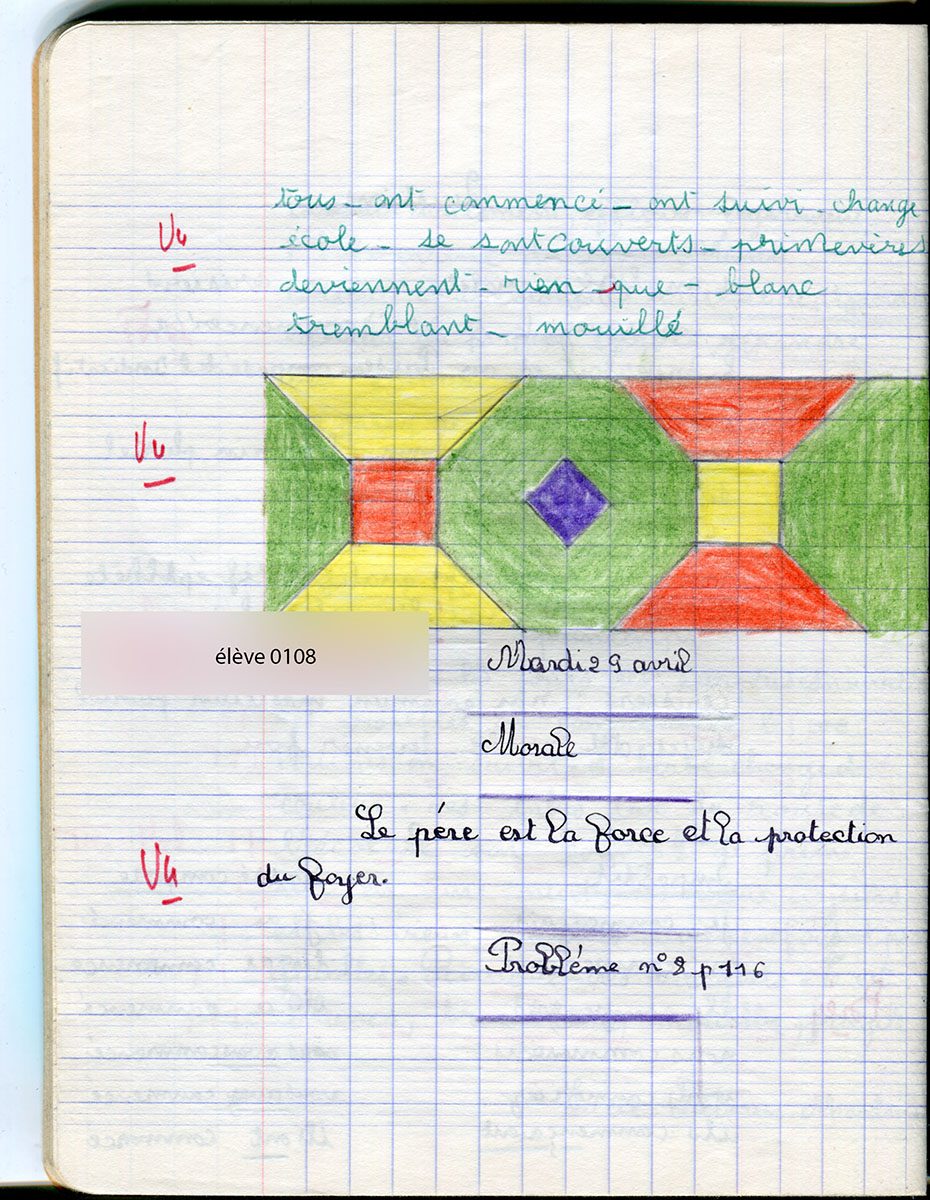 tous - ont commencé - ont suivi - change
Vu
école - se sont couverts - primevères
deviennent - rien - que - blanc
tremblant - mouillé
Vu
élève 0108
Mardi 29 avril
Morale
Le pére est la force et la protection
Vu
du foyer.
Probléme n° 8 p 116